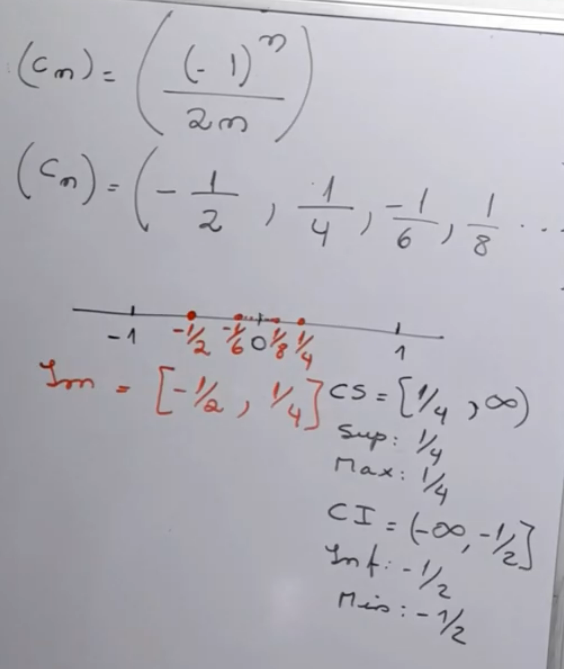 (Cn) = ((-1)^n / 2n)
(Cn) = (- 1/2 , 1/4 , -1/6 , 1/8 ...
-1 -1/2 -1/6 0 1/8 1/4 1
Im = [-1/2 , 1/4]
CS = [1/4 , ∞)
Sup: 1/4
Max: 1/4
CI = (-∞, -1/2]
Inf: -1/2
Min: -1/2